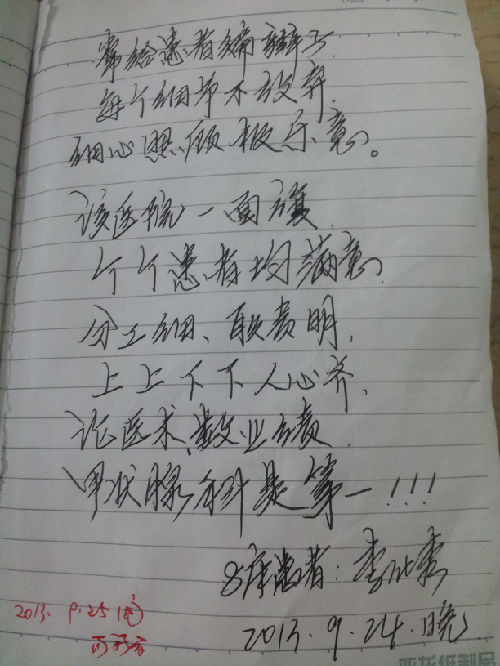 常给患者编辫子
每个细节不放弃
细心照顾极乐意。
该医院一面旗
个个患者均满意
分工细、职责明,
上上下下人心齐,
论医术,数业绩
甲状腺科是第一!!!
8床患者:李
2013.9.24.晚
2013.9.25
亚新纸制品